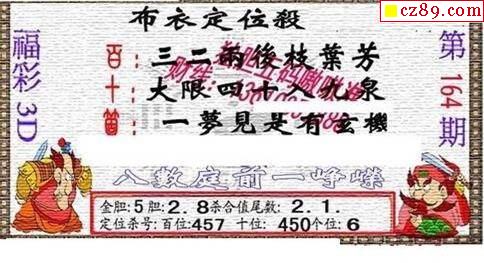 cz89.com
布衣定位殺
福彩3D
第164期
百：三二雨後枝葉芳
十：大限四十入九泉
箇：一夢見是有玄機
八數庭前一崢嶸
金胆:5胆:2.8杀合值尾数:2.1.
定位杀号:百位:457 十位:450个位:6